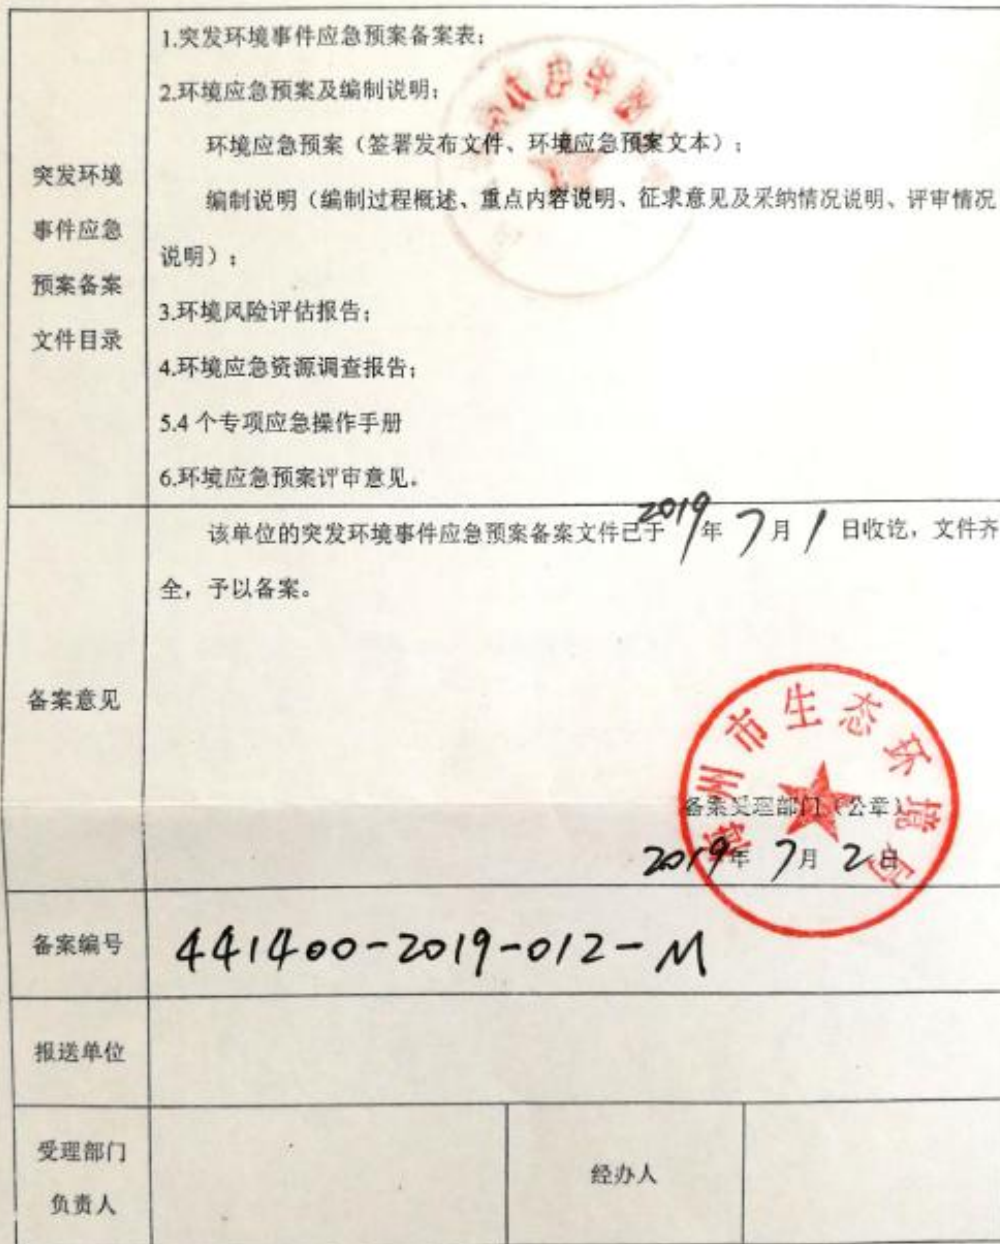 突发环境
事件应急
预案备案
文件目录
1.突发环境事件应急预案备案表;
2.环境应急预案及编制说明;
环境应急预案（签署发布文件、环境应急预案文本）;
编制说明（编制过程概述、重点内容说明、征求意见及采纳情况说明、评审情况
说明）;
3.环境风险评估报告;
4.环境应急资源调查报告;
5.4 个专项应急操作手册
6.环境应急预案评审意见。
备案意见
该单位的突发环境事件应急预案备案文件已于2019年7月1日收讫，文件齐
全，予以备案。
梅州市生态环境局
备案受理部门（公章）
2019年 7月 2日
备案编号
441400-2019-012-M
报送单位
受理部门
负责人
经办人